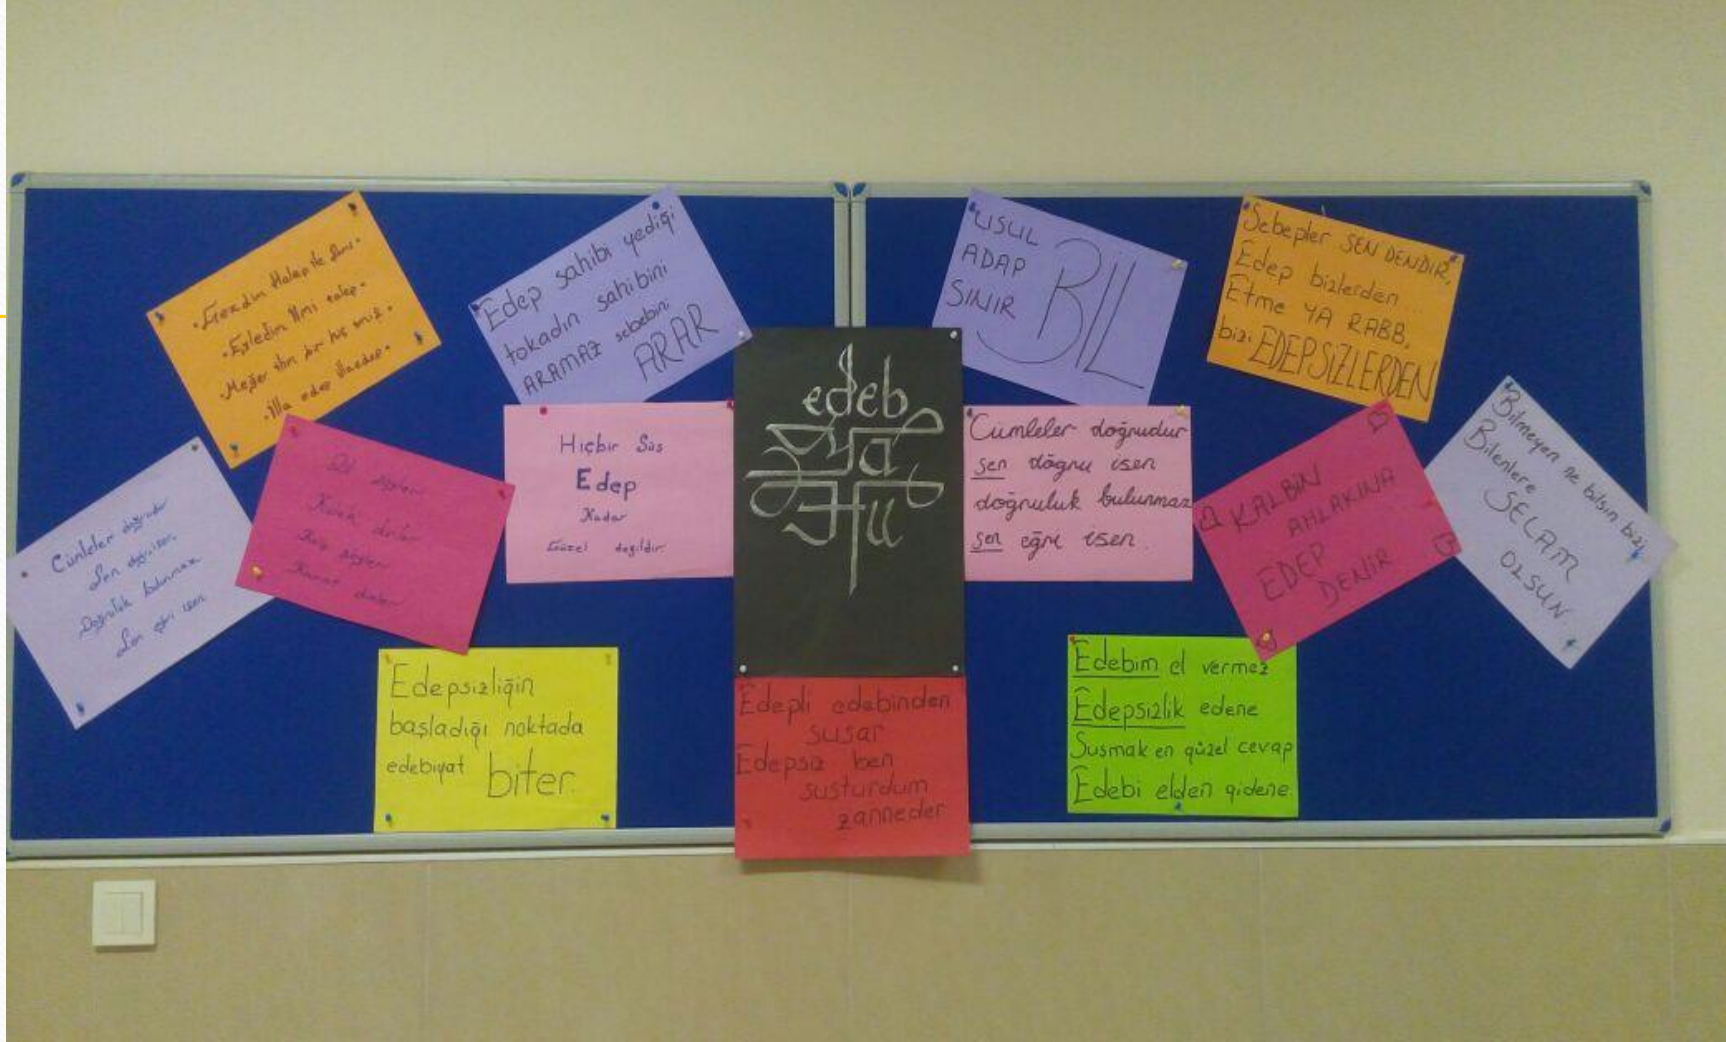 Gezdim Halep'te Şam.
Eyledim ilmi talep.
Meğer ilim bir hiç imiş.
illa edep illa edep.
Edep sahibi yediği
tokadın sahibini
ARAMAZ sebebini
ARAR
USUL
ADAP
SINIR
BİL
Sebepler SEN DENDİR,
Edep bizlerden...
Etme YA RABB,
bizi EDEPSİZLERDEN
Cümleler doğrudur
Sen doğru isen,
Doğruluk bulunmaz
Sen eğri isen.
Dil söyler
Kulak dinler
Kalp söyler
dinler
Hiçbir Süs
Edep
Kadar
Güzel değildir.
edeb
ya
Hu
Cümleler doğrudur
sen doğru isen
doğruluk bulunmaz
sen eğri isen.
KALBİN
AHLAKINA
EDEP
DENİR
Bilmeyen ne bilsin bizi,
Bilenlere
SELAM
OLSUN
Edepsizliğin
başladığı noktada
edebiyat biter.
Edepli edebinden
susar
Edepsiz ben
susturdum
zanneder
Edebim el vermez
Edepsizlik edene
Susmak en güzel cevap
Edebi elden gidene.